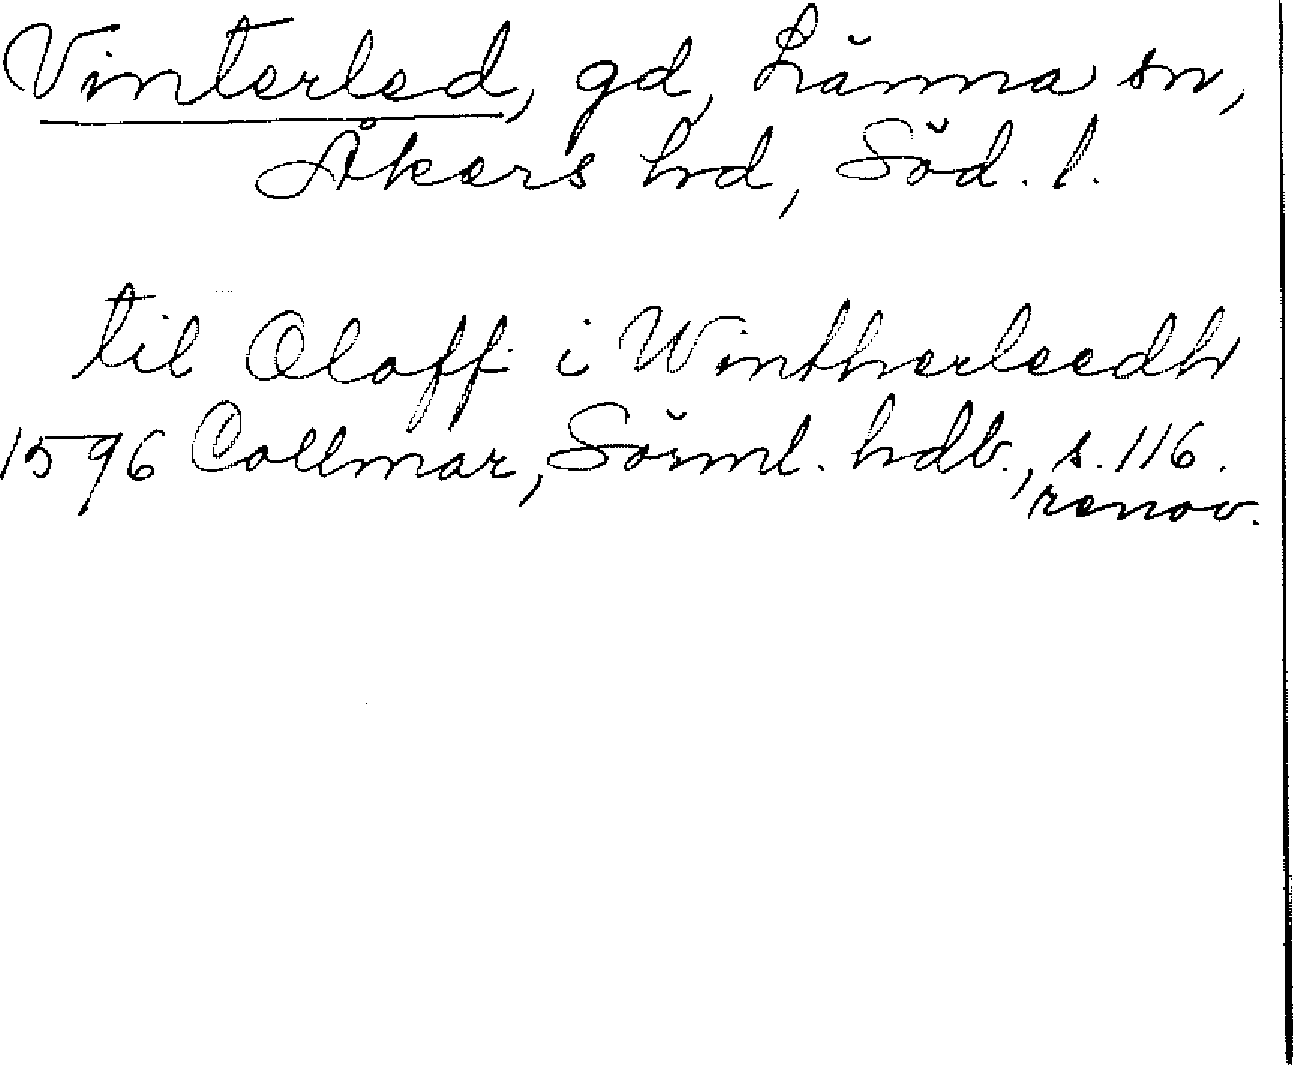 Vinterled, gd, Länna sn,
Åkers hd, Söd. l.
til Oloff i Wintherleedh
1596 Collmar, Sörml. hdb., s. 116.
renov.